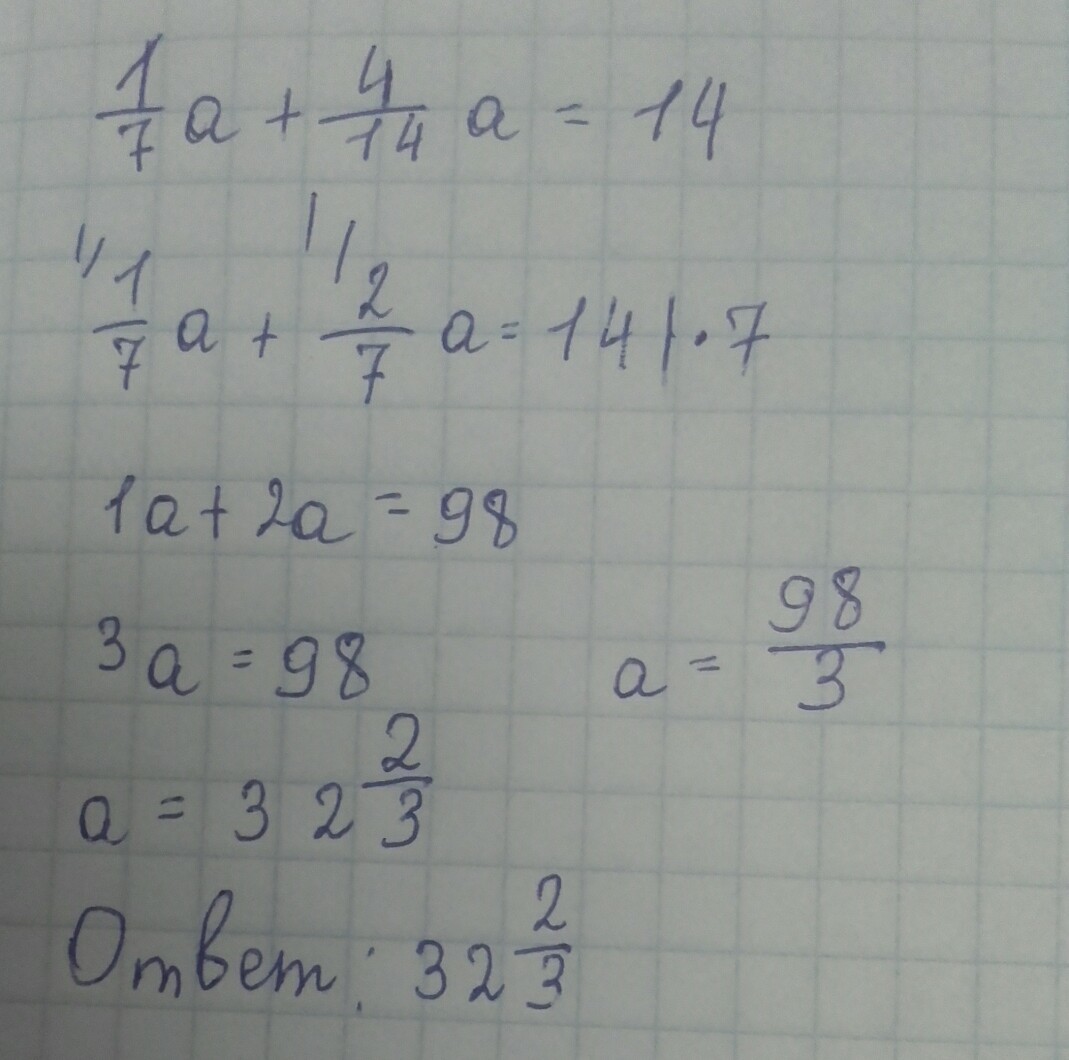 1/7 a + 4/14 a = 14
1/ 1/7 a + 1/ 2/7 a = 14 | · 7
1a + 2a = 98
3a = 98 a = 98/3
a = 32 2/3
Ответ: 32 2/3